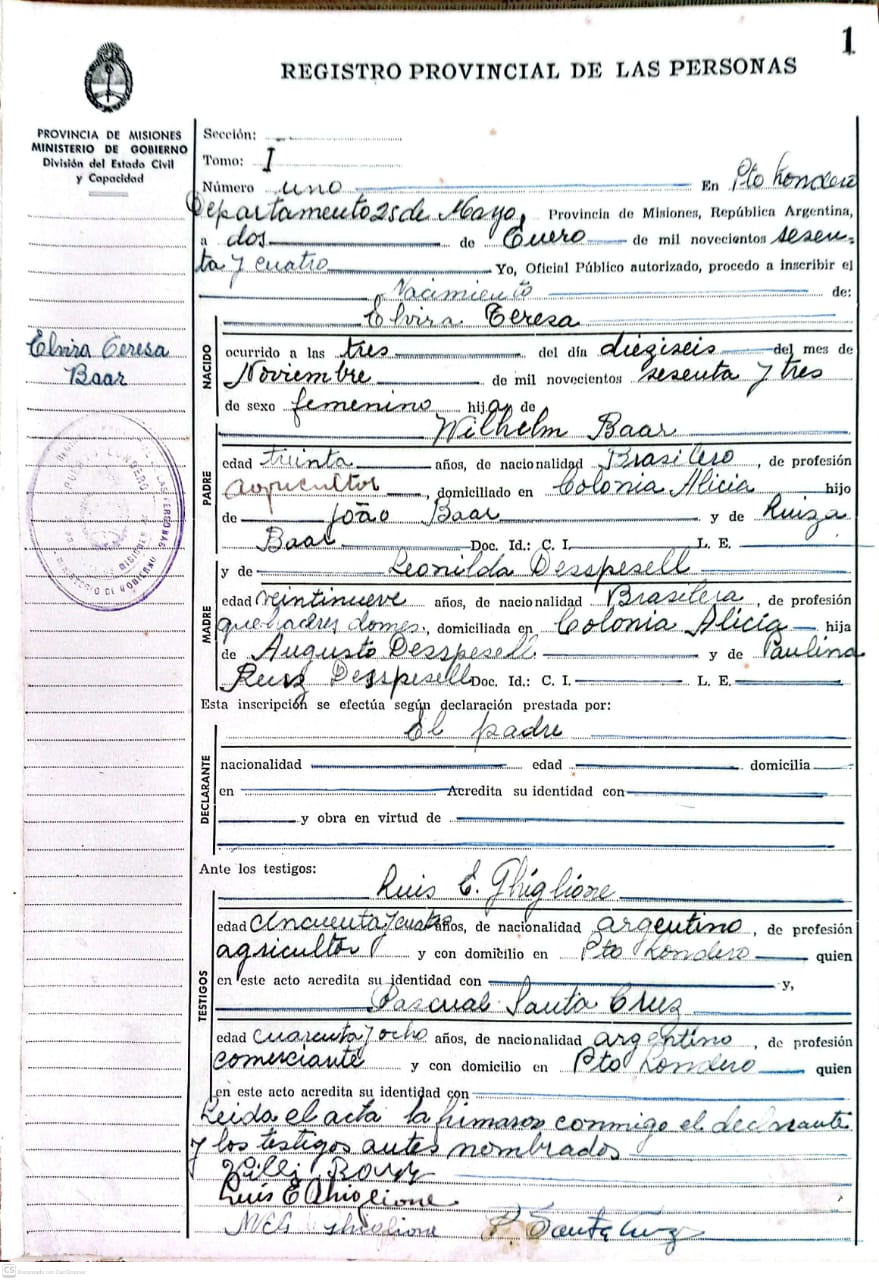 1
REGISTRO PROVINCIAL DE LAS PERSONAS
PROVINCIA DE MISIONES
MINISTERIO DE GOBIERNO
División del Estado Civil
y Capacidad
Elvira Teresa
Baar
Sección:
Tomo: I
Número uno En Pto Londero
Departamento 25 de Mayo, Provincia de Misiones, República Argentina,
a dos de Enero de mil novecientos sesen-
ta y cuatro Yo, Oficial Público autorizado, procedo a inscribir el
Nacimiento de:
Elvira Teresa
NACIDO
ocurrido a las tres del día dieziseis del mes de
Noviembre de mil novecientos sesenta y tres
de sexo femenino hija de
Wilhelm Baar
PADRE
edad treinta años, de nacionalidad Brasilero, de profesión
agricultor, domiciliado en Colonia Alicia hijo
de João Baar y de Luiza
Baar Doc. Id.: C. I. L. E.
y de Leonilda Desspesell
MADRE
edad veintinueve años, de nacionalidad Brasilera, de profesión
quehaceres domes., domiciliada en Colonia Alicia hija
de Augusto Desspesell y de Paulina
Desspesell Doc. Id.: C. I. L. E.
Esta inscripción se efectúa según declaración prestada por:
El padre
DECLARANTE
nacionalidad edad domicilia
en Acredita su identidad con
y obra en virtud de
Ante los testigos:
Luis E. Ghiglione
TESTIGOS
edad cincuenta y cuatro años, de nacionalidad argentino, de profesión
agricultor y con domicilio en Pto Londero quien
en este acto acredita su identidad con y,
Pascual Santa Cruz
edad cuarenta y ocho años, de nacionalidad argentino, de profesión
comerciante y con domicilio en Pto Londero quien
en este acto acredita su identidad con
Leida el acta la firmaron conmigo el declarante
y los testigos antes nombrados
Luis E Ghiglione
Ghiglione P. Santa Cruz
CS Escaneado con CamScanner